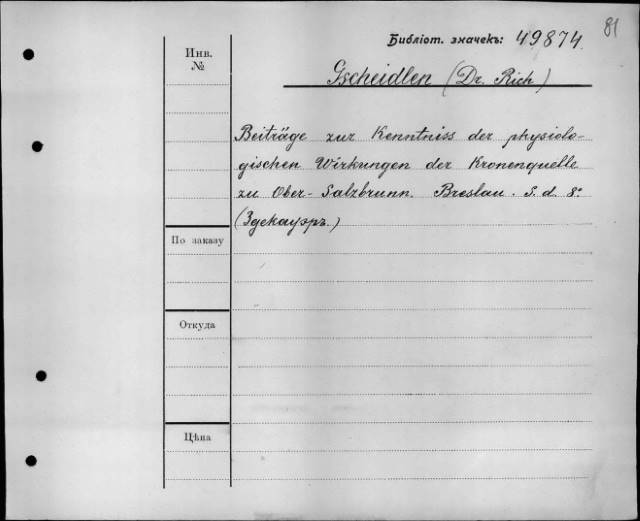 81
Библіот. значекъ: 49874.
Инв.
№
Gscheidlen (Dr. Rich)
Beiträge zur Kenntniss der physiolo-
gischen Wirkungen der Kronenquelle
zu Ober-Salzbrunn. Breslau. S. d. 8°
(Здекауэръ.)
По заказу
Откуда
Цѣна